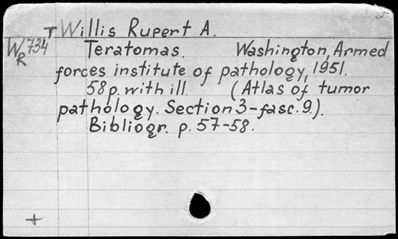 T Willis Rupert A.
W 734 Teratomas. Washington, Armed
R forces institute of pathology, 1951.
58p. with ill. (Atlas of tumor
pathology. Section 3-fasc. 9.).
Bibliogr. p. 57-58.
+